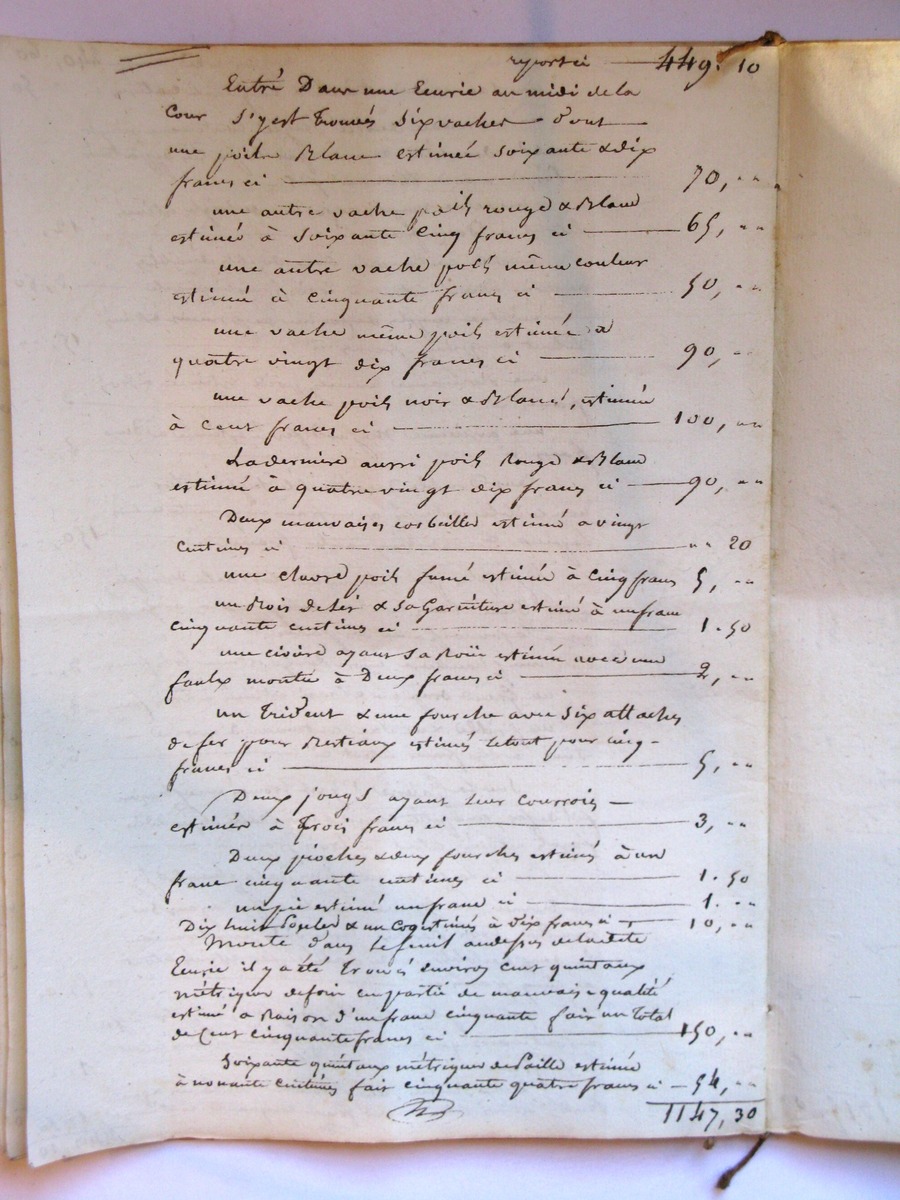 reporté ci 449. 10
Entré Dans une Ecurie au midi de la
Cour S'y est Trouvés Six vaches dont
une poile Blanc estimée Soixante & dix
francs ci 70, ""
une autre vache poils rouge & Blanc
estimé à Soixante Cinq francs ci 65, ""
une autre vache poils même couleur
estimé à cinquante francs ci 50, ""
une vache même poils estimée a
quatre vingt dix francs ci 90, ""
une vache poils noir & Blancs, estimée
à Cent francs ci 100, ""
La dernière aussi poils Rouge & Blanc
estimé à quatre vingt dix francs ci 90, ""
Deux mauvaises corbeilles estimé a vingt
Centimes ci "" 20
une chevre poils fumé estimée à Cinq francs 5, ""
un Bois de lit & Sa Garniture estimé à un franc
Cinquante centimes ci 1. 50
une civière ayant Sa Roüe estimée avec une
faulx montée à Deux francs ci 2, ""
un Trident & une fourche avec Six attaches
de fer pour Bestiaux estimés le tout pour cinq
francs ci 5, ""
Deux jougs ayant leur Courroies
estimés à Trois francs ci 3, ""
Deux pioches & deux fourches estimés à un
franc cinquante centimes ci 1. 50
un estimé un franc ci 1. ""
Dix huit Poules & un Coq estimés à dix francs ci 10, ""
Monté dans le fenil audessus de ladite
Ecurie il y a été Trouvé environ cent quintaux
métrique de foin en partie de mauvaise qualité
estimé a Raison d'un franc cinquante fait un Total
de Cent cinquante francs ci 150, ""
Soixante quintaux métrique de Paille estimée
à nonante Centimes fait cinquante quatre francs ci 54, ""
1147, 30